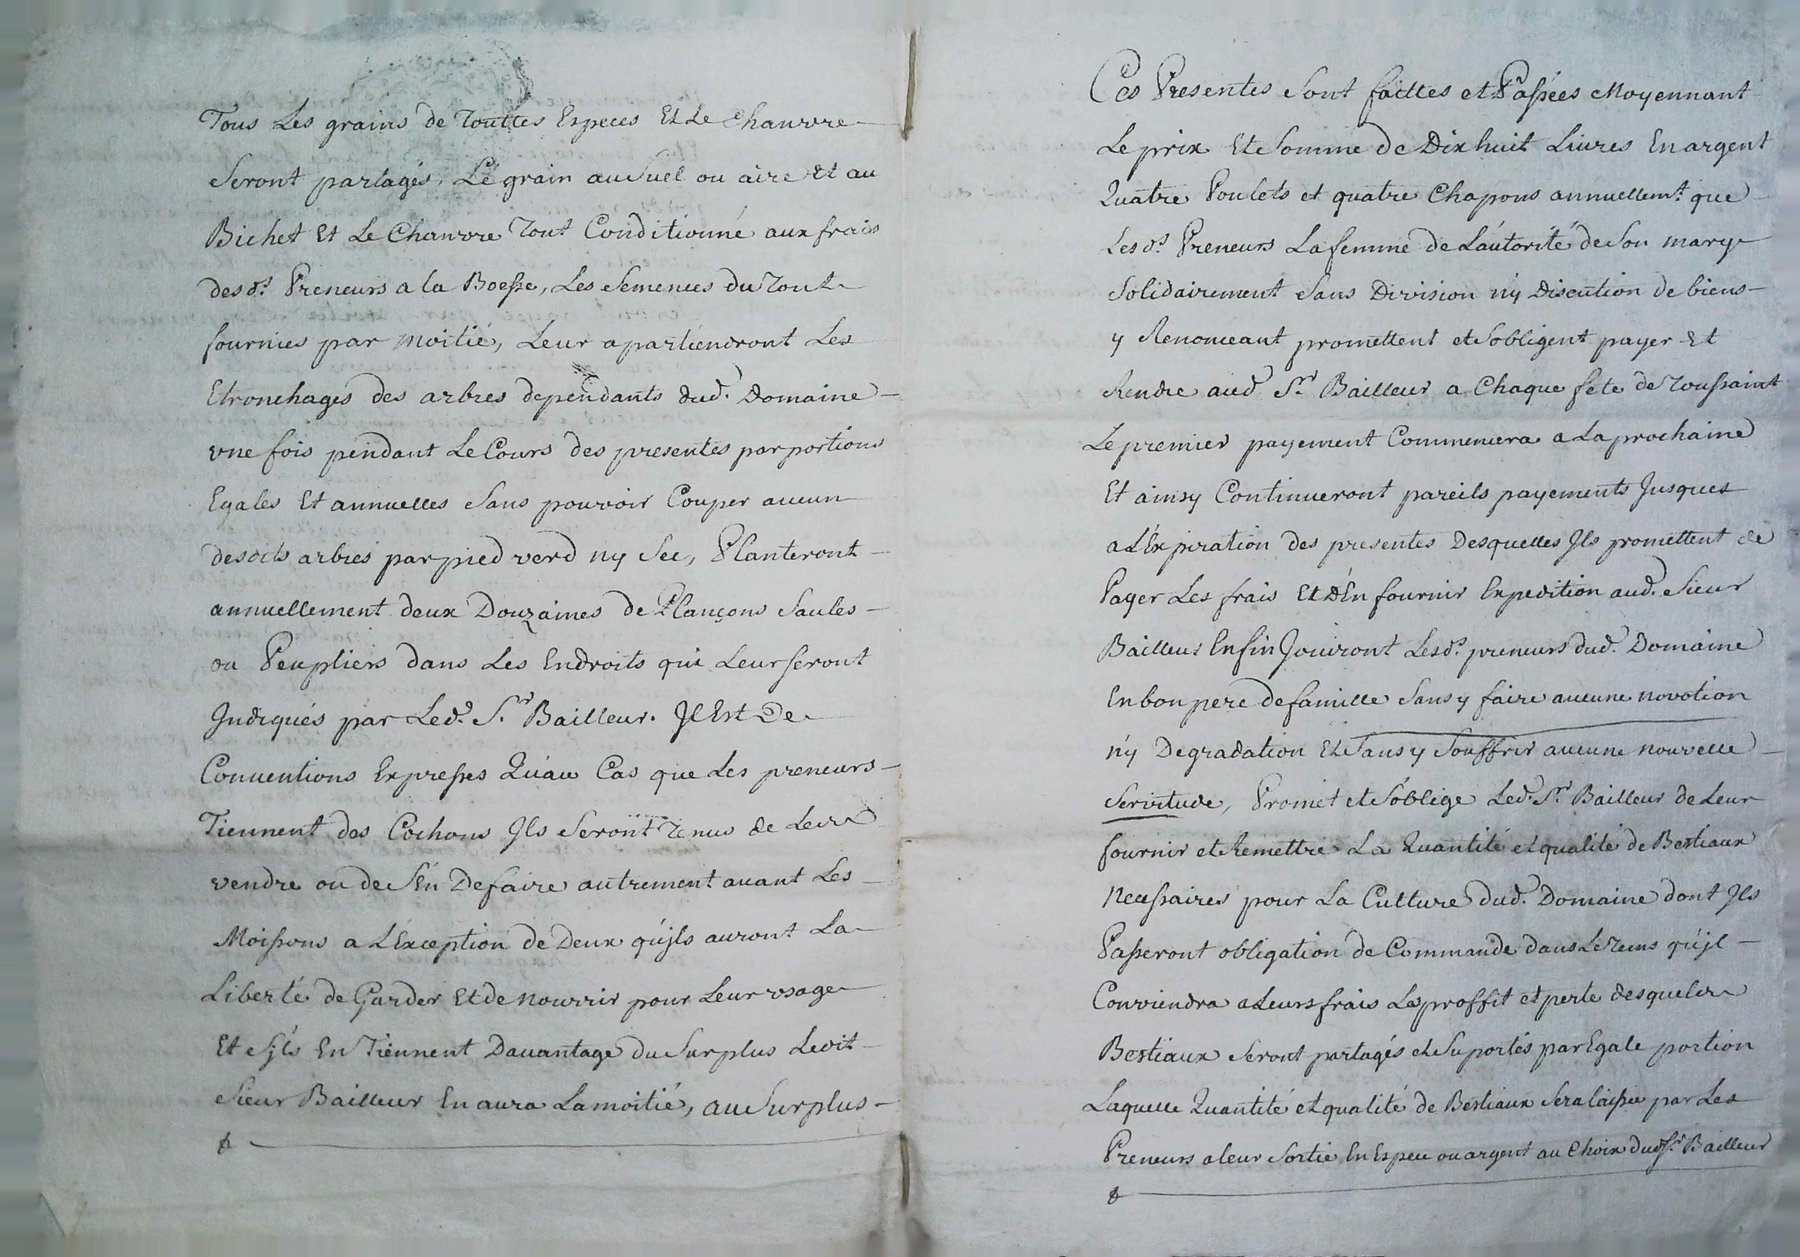 Tous Les grains de Touttes Especes Et Le Chanvre
Seront partagés, Le grain au Suel ou aire et au
Bichet Et Le Chanvre Tout Conditionné aux frais
desd.s Preneurs a la Boesse, Les Semences du Tout
fournies par moitié, Leur apartiendront Les
Etronchages des arbres dependants dud. Domaine
vne fois pendant Le Cours des presentes par portions
Egales Et annuelles Sans pouvoir Couper aucun
desdits arbres par pied verd ny Sec, Planteront
annuellement deux Douzaines de Plançons Saules
ou Peupliers dans Les Endroits qui Leur seront
Judiqués par Led. S.r Bailleur. Jl Est De
Conuentions Expresses Qu'au Cas que Les preneurs
Tiennent des Cochons Jls Seront Tenus de Les
vendre ou de S'En Defaire autrement auant Les
Moissons a L'Exception de Deux qu'jls auront La
Liberté de Garder Et de nourrir pour Leur vsage
Et s'jls En Tiennent Dauantage du Surplus Ledit
Sieur Bailleur En aura La moitié, au Surplus
Ces Presentes Sont faittes et Passées Moyennant
Le prix Et Somme de Dix huit Liures En argent
Quatre Poulets et quatre Chapons annuellem.t que
Lesd.s Preneurs La femme de L'autorité de Son mary
Solidairement Sans Division ny Discution de biens
y Renonceant promettent et S'obligent payer Et
Rendre aud. S.r Bailleur a Chaque fete de Toussaint
Le premier payement Commencera a La prochaine
Et ainsy Continueront pareils payements Jusques
a L'Expiration des presentes Desquelles Jls promettent de
Payer Les frais Et d'En fournir Expedition aud. Sieur
Bailleur Enfin Jouiront Lesd.s preneurs dud. Domaine
En bon pere de famille Sans y faire aucune novation
n'y Degradation Et Sans y Souffrir aucune nouvelle
Servitude, Promet et S'oblige Led. S.r Bailleur de Leur
fournir et Remettre La Quantité et qualité de Bestiaux
Necessaires pour La Culture dud. Domaine dont Jls
Passeront obligation de Commande dans Le Tems qu'jl
Conviendra a Leurs frais Le proffit et perte desquels
Bestiaux Seront partagés et Suportés par Egale portion
Laquelle Quantité et qualité de Bestiaux Sera laissée par Les
Preneurs a leur Sortie En Espece ou argent au Choix dud. S.r Bailleur